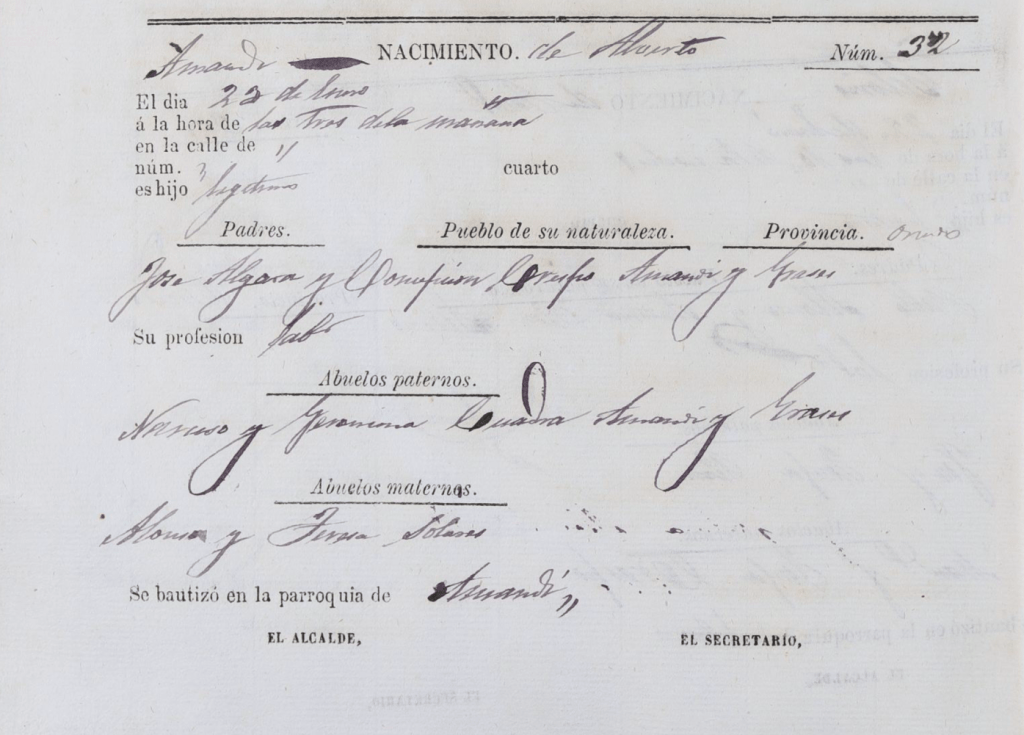 Amandi NACIMIENTO. de Alverto Núm. 32
El dia 22 de Enero
á la hora de las Tres dela mañana
en la calle de "
núm. " cuarto
es hijo legitimo
Padres. Pueblo de su naturaleza. Provincia. Oviedo
Jose Algara y Concepcion Crespo Amandi y
Su profesion Labr
Abuelos paternos.
Narciso y Geronima Cuadra Amandi y
Abuelos maternos.
Alonso y Teresa Solares
Se bautizó en la parroquia de Amandi "
EL ALCALDE, EL SECRETARIO,